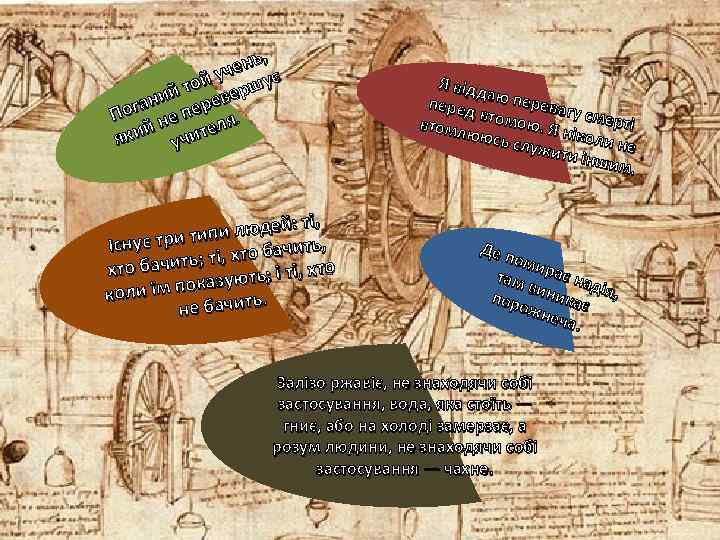 Поганий той учень,
який не перевершує
учителя.
Я віддаю перевагу смерті
перед втомою. Я ніколи не
втомлююсь служити іншим.
Існує три типи людей: ті,
хто бачить; ті, хто бачить,
коли їм показують; і ті, хто
не бачить.
Де помирає надія,
там виникає
порожнеча.
Залізо ржавіє, не знаходячи собі
застосування, вода, яка стоїть —
гниє, або на холоді замерзає, а
розум людини, не знаходячи собі
застосування — чахне.